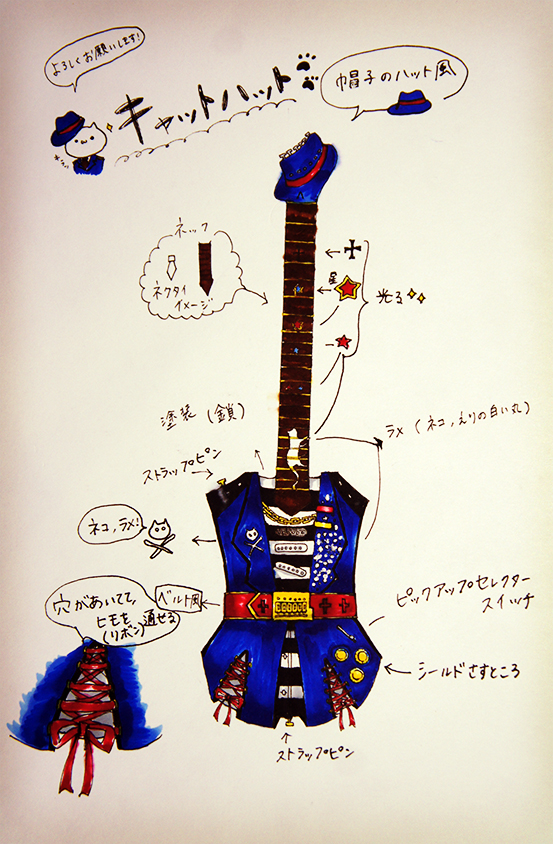 よろしくお願いします!
キャットハット
帽子のハット風
ネック
ネクタイ
イメージ
星
光る
塗装 (鎖)
ストラップピン
ラメ (ネコ,えりの白い丸)
ネコ,ラメ!
ベルト風
穴があいてて,
ヒモを通せる
(リボン)
ピックアップセレクター
スイッチ
シールドさすところ
ストラップピン